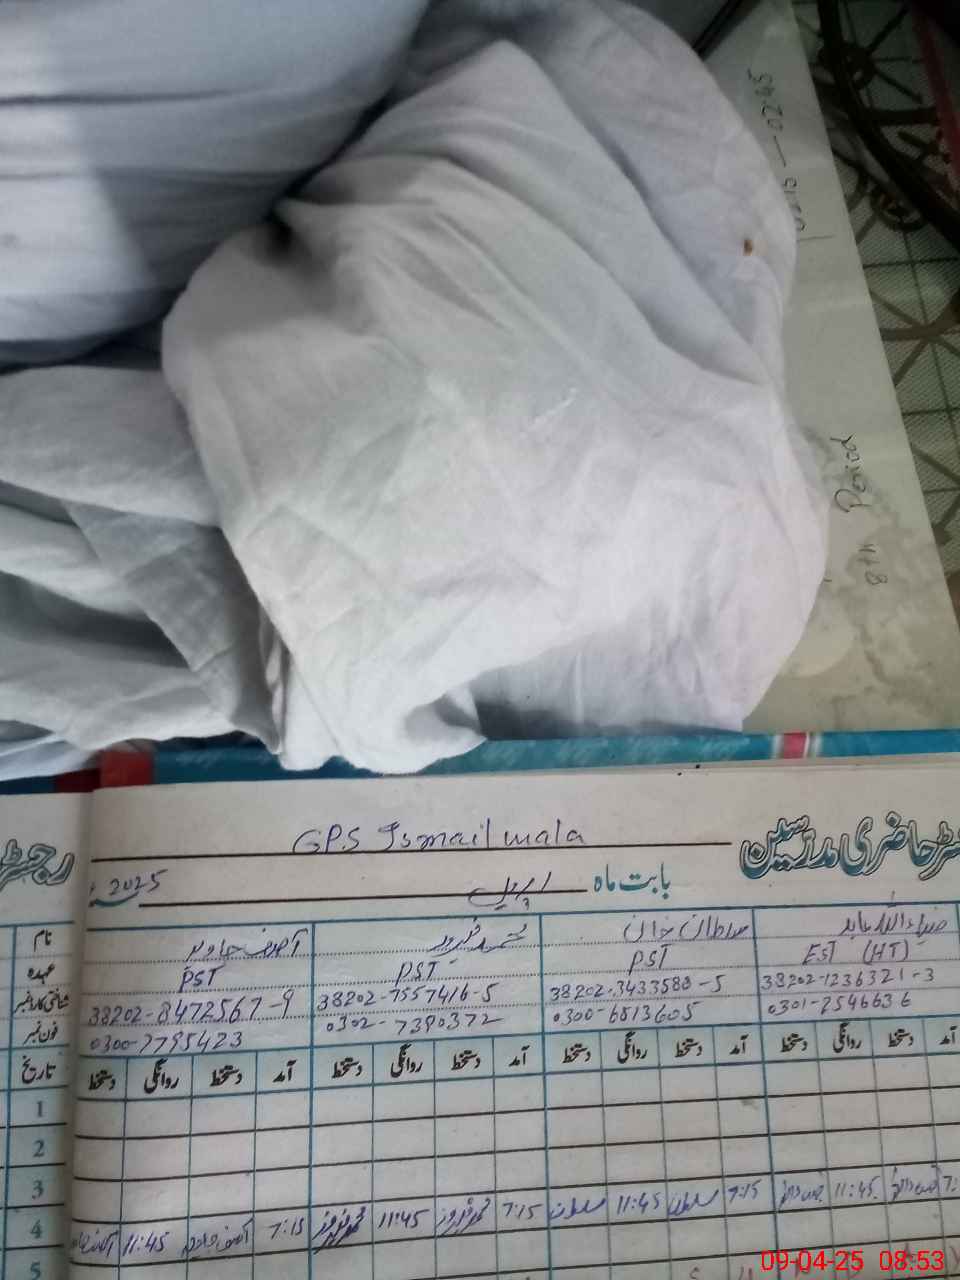 0210 — 0245
8th Period
GPS Ismail wala
رجسٹر حاضری مدرسین
بابت ماہ اپریل 2025ء
نام ضیاء اللہ عابد سلطان خان محمد فیروز آصف جاوید
عہدہ EST (HT) PST PST PST
شناختی کارڈ نمبر 38202-1236321-3 38202-3433588-5 38202-7557416-5 38202-8472567-9
فون نمبر 0301-2546636 0300-6513605 0302-7390372 0300-7795423
تاریخ آمد دستخط روانگی دستخط آمد دستخط روانگی دستخط آمد دستخط روانگی دستخط آمد دستخط روانگی دستخط
1
2
3
4 7: 11:45 7:15 سلطان 11:45 سلطان 7:15 محمد فیروز 11:45 محمد فیروز 7:15 آصف جاوید 11:45
5
09-04-25 08:53